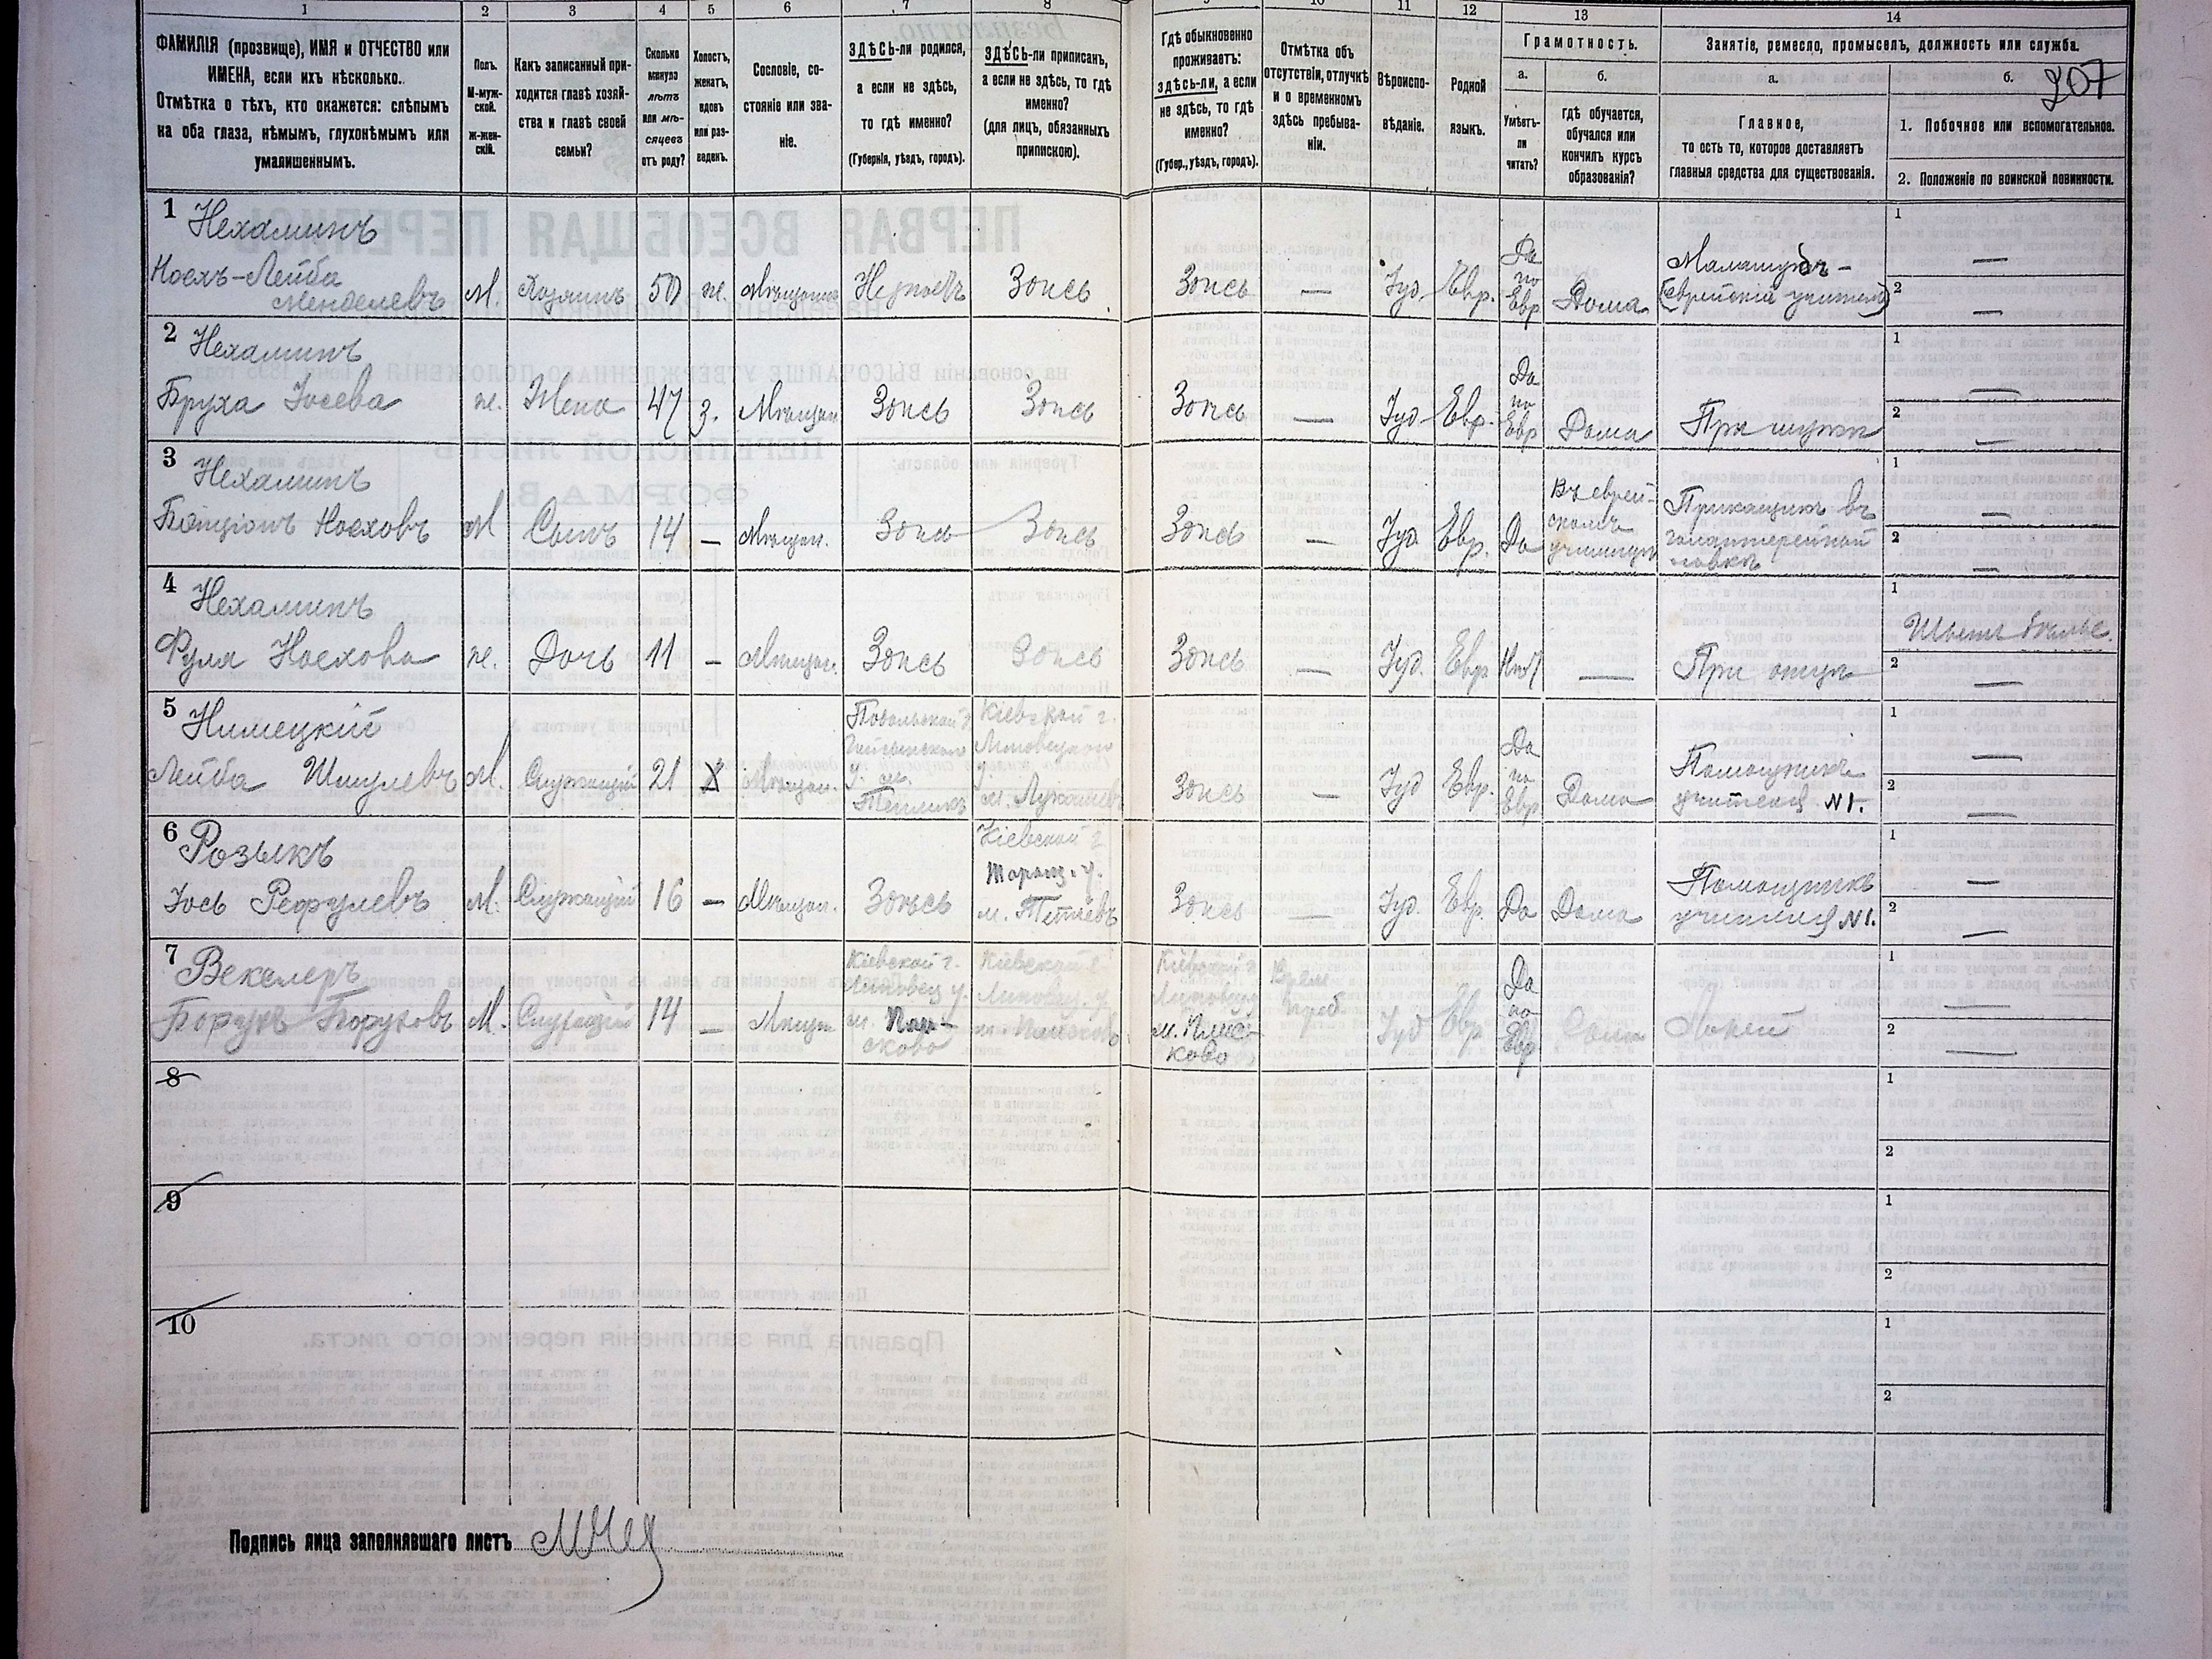 1 2 3 4 5 6 7 8 9 10 11 12 13 14
ФАМИЛІЯ (прозвище), ИМЯ и ОТЧЕСТВО или
ИМЕНА, если ихъ нѣсколько.
Отмѣтка о тѣхъ, кто окажется: слѣпымъ
на оба глаза, нѣмымъ, глухонѣмымъ или
умалишеннымъ.
Полъ.
М-муж-
ской.
Ж-жен-
скій.
Какъ записанный при-
ходится главѣ хозяй-
ства и главѣ своей
семьи?
Сколько
минуло
лѣтъ
или мѣ-
сяцевъ
отъ роду?
Холостъ,
женатъ,
вдовъ
или раз-
веденъ.
Сословіе, со-
стояніе или зва-
ніе.
ЗДѢСЬ-ли родился,
а если не здѣсь,
то гдѣ именно?
(Губернія, уѣздъ, городъ).
ЗДѢСЬ-ли приписанъ,
а если не здѣсь, то гдѣ
именно?
(для лицъ, обязанныхъ
припискою).
Гдѣ обыкновенно
проживаетъ:
здѣсь-ли, а если
не здѣсь, то гдѣ
именно?
(Губер., уѣздъ, городъ).
Отмѣтка объ
отсутствіи, отлучкѣ
и о временномъ
здѣсь пребыва-
ніи.
Вѣроиспо-
вѣданіе.
Родной
языкъ.
Грамотность.
а.
Умѣетъ-
ли
читать?
б.
гдѣ обучается,
обучался или
кончилъ курсъ
образованія?
Занятіе, ремесло, промыселъ, должность или служба.
а.
Главное,
то есть то, которое доставляетъ
главныя средства для существованія.
б.
207
1. Побочное или вспомогательное.
2. Положеніе по воинской повинности.
1 Нехаминъ
Ноехъ-Лейба
Менделевъ М. Хозяинъ 50 ж. Мѣщанинъ Здѣсь Здѣсь — Іуд. Евр. Да по Евр Дома
(Еврейскій учитель)
1 —
2 —
2 Нехаминъ
Бруха Іосева ж. Жена 47 З. Мѣщан Здѣсь Здѣсь Здѣсь — Іуд Евр. Да по Евр Дома При мужѣ
1 —
2 —
3 Нехаминъ
Ноеховъ М Сынъ 14 — Мѣщан. Здѣсь Здѣсь Здѣсь — Іуд Евр. Да
Въ еврей-
скомъ
училищѣ
Прикащикъ въ
галантерейной
лавкѣ
1 —
2 —
4 Нехаминъ
Ноехова ж. Дочь 11 — Мѣщан. Здѣсь Здѣсь Здѣсь — Іуд. Евр Нѣтъ — При отцѣ
1 Шьетъ бѣлье.
2 —
5 Нимецкій
Лейба Шмулевъ М. Служащій 21 Х Мѣщан.
Подольской г
Гайсинскаго
у. м.
Тепликъ
Кіевской г.
Липовецкаго
у.
Здѣсь — Іуд Евр. Да по Евр Дома
Помощникъ
учителя №1.
1 —
2 —
6 Розыкъ
Іось Рефулевъ М. Служащій 16 — Мѣщан. Здѣсь
Кіевской г
Таращ. у.
м. Тетіевъ
Здѣсь — Іуд. Евр. Да Дома
Помощникъ
учителя №1.
1 —
2 —
7 Векслеръ
Борухъ Боруховъ М. Служащій 14 — Мѣщан
Кіевской г.
Липовец у.
м. Плис-
ково
Кіевской г
Липовец. у.
м. Плисково
Кіевской г
м. Плис-
ково
Врем
преб.
Іуд Евр Да по Евр Дома Лакей
1 —
2 —
8
1
2
9
1
2
10
1
2
Подпись лица заполнявшаго листъ